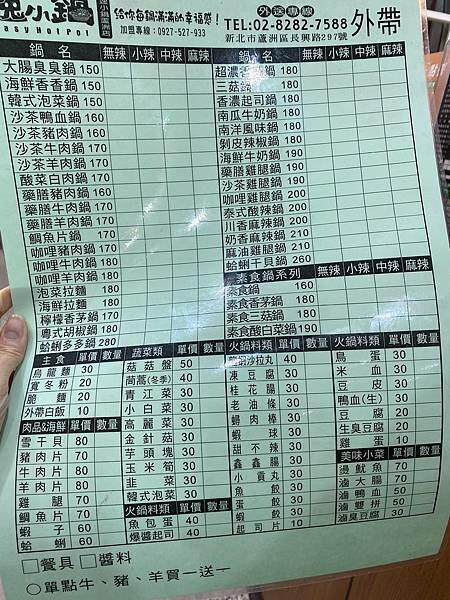 兔小鍋
Easy Hot Pot
給你每鍋滿滿的幸福感!
加盟專線:0927-527-933
外送專線
TEL:02-8282-7588
新北市蘆洲區長興路297號
外帶
鍋名 無辣 小辣 中辣 麻辣
大腸臭臭鍋 150
海鮮香香鍋 150
韓式泡菜鍋 150
沙茶鴨血鍋 160
沙茶豬肉鍋 160
沙茶牛肉鍋 170
沙茶羊肉鍋 170
酸菜白肉鍋 170
藥膳豬肉鍋 160
藥膳牛肉鍋 170
藥膳羊肉鍋 170
鯛魚片鍋 170
咖哩豬肉鍋 170
咖哩牛肉鍋 180
咖哩羊肉鍋 180
泡菜拉麵 180
海鮮拉麵 180
檸檬香茅鍋 170
粵式胡椒鍋 180
蛤蜊多多鍋 280
鍋名 無辣 小辣 中辣 麻辣
超濃香鍋 180
三菇鍋 180
香濃起司鍋 180
南瓜牛奶鍋 180
南洋風味鍋 180
剝皮辣椒鍋 180
海鮮牛奶鍋 190
藥膳雞腿鍋 190
沙茶雞腿鍋 190
咖哩雞腿鍋 200
泰式酸辣鍋 200
川香麻辣鍋 200
奶香麻辣鍋 210
麻油雞腿鍋 210
蛤蜊干貝鍋 260
素食鍋系列 無辣 小辣 中辣 麻辣
素食鍋 160
素食香茅鍋 180
素食三菇鍋 180
素食酸白菜鍋 190
主食 單價 數量
烏龍麵 30
寬冬粉 20
脆麵 20
外帶白飯 10
肉品&海鮮 單價 數量
雪干貝 80
豬肉片 70
牛肉片 80
羊肉片 80
雞腿 70
鯛魚片 70
蝦子 60
蛤蜊 60
蔬菜類 單價 數量
菇菇盤 50
茼蒿(冬季) 40
青江菜 30
小白菜 30
高麗菜 30
金針菇 30
芋頭塊 30
玉米筍 30
韭菜 30
韓式泡菜 30
火鍋料類 單價 數量
魚包蛋 40
爆醬起司 40
火鍋料類 單價 數量
龍蝦沙拉丸 40
凍豆腐 30
桂花腸 30
老油條 30
蟳肉棒 30
蝦球 30
甜不辣 30
鑫鑫腸 30
小貢丸 30
魚餃 30
蛋餃 30
蝦餃 30
起司片 10
火鍋料類 單價 數量
鳥蛋 30
米血 30
豆皮 30
鴨血(生) 30
豆腐 20
生臭豆腐 20
雞蛋 10
美味小菜 單價 數量
滷大腸 70
滷鴨血 50
滷雙拼 50
滷臭豆腐 30
□餐具 □醬料
○單點牛、豬、羊買一送一